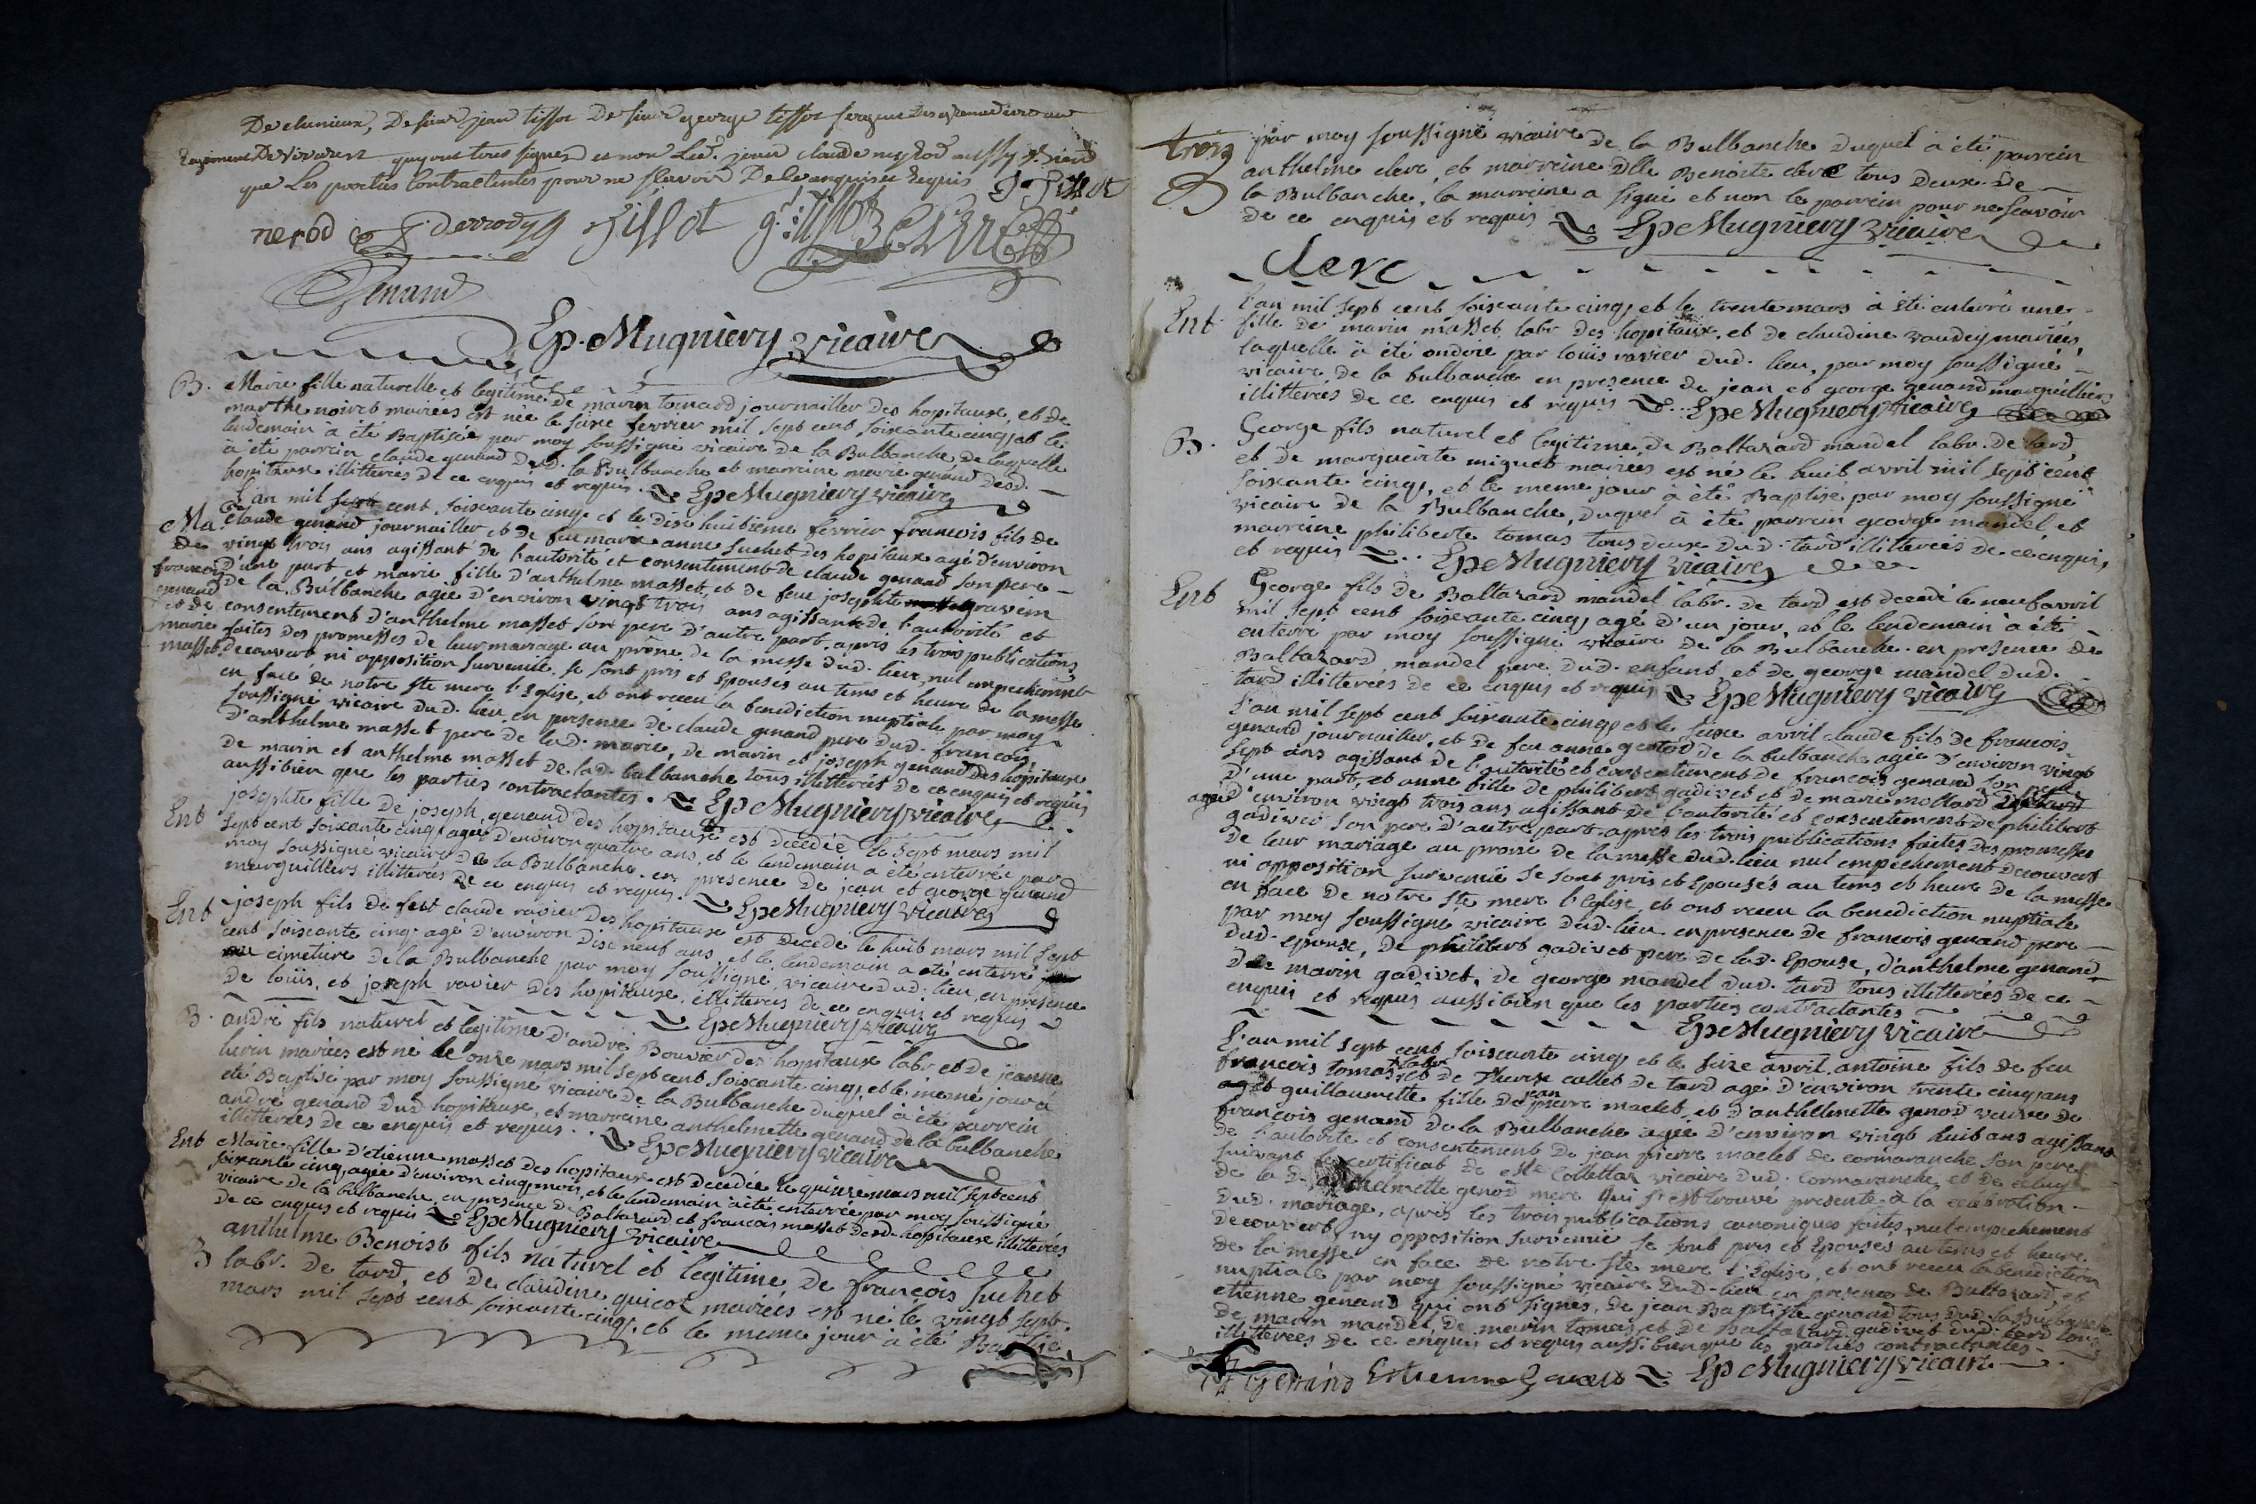 De chemieux, De sieur jean tissot De sieur george tissot sergent Des grenadiers au
Regiment De vivarest qui ont tous signés et non Led. jean claude neyrod aussy
que Les parties Contractantes pour ne sçavoir De le enquises Requis J. Tissot
nerod Derrody Tissot g. tissot CLERC
Genand
Epe Mugniery vicaire
B. Marie fille naturelle et legitime de marin toinard journailler des hopitaux, et de
marthe noireb mariees est née le seize fevrier mil sept cent soixante cinq, et le
lendemain à été Baptisée par moy soussigné vicaire de la Bulbanche de laquelle
à été parrein claude genand dud. la Bulbanche et marreine marie genand desd.
hopitaux illitterés de ce enquis et requis. Epe Mugniery vicaire
L'an mil sept cent soixante cinq et le dix huitieme février francois fils de
Ma. claude genand journailler et de feu marie anne suchet des hopitaux agé d'environ
de vingt trois ans agissant de l'autorité et consentement de claude genand son pere
francois d'une part et marie fille d'anthelme masset, et de feu josephte gravein
genand de la Bulbanche agée d'environ vingt trois ans agissante de l'autorité et
et de consentement d'anthelme masset son pere d'autre part. après les trois publications
marie faites des promesses de leur mariage au prône de la messe dud. lieu, nul empechement
masset. decouvert ni opposition survenue. se sont pris et Epousés au tems et heure de la messe
en face de notre ste mere l'Eglise, et ont receu la benediction nuptiale par moy
soussigné vicaire dud. lieu en presence de claude genand pere dud. francois,
d'anthelme masset pere de lad. marie, de marin et joseph genand des hopitaux
de marin et anthelme masset de lad. bulbanche tous illitterés de ce enquis et requis
aussi bien que les parties contractantes. Epe Mugniery vicaire
Ent josephte fille de joseph genand des hopitaux est decedée le sept mars mil
sept cent soixante cinq agée d'environ quatre ans, et le lendemain a été enterrée par
moy soussigné vicaire de la Bulbanche. en presence de jean et george genand
marguilliers illitterés de ce enquis et requis. Epe Mugniery vicaire
Ent joseph fils de feu claude ravier des hopitaux est decedé le huit mars mil sept
cent soixante cinq: agé d'environ dix neuf ans, et le lendemain a été enterré
au cimetiere de la Bulbanche par moy soussigné, vicaire dud. lieu, en presence
de loüis, et joseph ravier des hopitaux. illitterés de ce enquis et requis
Epe Mugniery vicaire
B. andré fils naturel et legitime d'andré Bouvier des hopitaux labr. et de jeanne
hivin mariées est né le onze mars mil sept cent soixante cinq, et le meme jour à
été Baptisé par moy soussigné vicaire de la Bulbanche duquel à été parrein
andré genand dud. hopitaux, et marreine anthelmette genand de la bulbanche
illitterées de ce enquis et requis. Epe Mugniery vicaire
Ent Marie fille d'etienne masset des hopitaux est decedée le quinze mars mil sept cent
soixante cinq, agée d'environ cinq mois, et le lendemain à été enterrée par moy soussigné
vicaire de la bulbanche, en presence de Baltazard et francois masset desd. hopitaux illitterés
de ce enquis et requis Epe Mugniery vicaire
B anthelme Benoist fils naturel et legitime de francois suchet
labr. de tard, et de claudine quicot mariées est né le vingt sept.
mars mil sept cent soixante cinq, et le meme jour à été Baptisé
trois par moy soussigné vicaire de la Bulbanche duquel à été parrein
anthelme clerc, et marreine Dlle Benoite clerc tous deux de
la Bulbanche, la marreine a signé et non le parrein pour ne scavoir
de ce enquis et requis Epe Mugniery vicaire
Clerc
Ent. L'an mil sept cent soixante cinq, et le trente mars à été enterré une
fille de marin masset labr. des hopitaux, et de claudine vaudey mariées,
laquelle à été ondoié par loüis ravier dud. lieu, par moy soussigné
vicaire de la bulbanche en presence de jean et george genand marguilliers
illitterés de ce enquis et requis Epe Mugniery vicaire
B. George fils naturel et legitime de Baltazard mandel labr. de tard,
et de marguerite miguet mariées est né le huit avril mil sept cent
soixante cinq, et le meme jour à été Baptisé par moy soussigné
vicaire de la Bulbanche, duquel à été parrein george mandel et
marreine philiberte tomas tous deux dud. tard illitterés de ce enquis,
et requis Epe Mugniery vicaire
Ent George fils de Baltazard mandel labr. de tard est decedé le neuf avril
mil sept cent soixante cinq, agé d'un jour, et le lendemain à été
enterré par moy soussigné vicaire de la Bulbanche. en presence de
Baltazard mandel pere dud. enfant et de george mandel dud.
tard illitterés de ce enquis et requis Epe Mugniery vicaire
L'an mil sept cent soixante cinq, et le seize avril claude fils de francois
genand journailler, et de feu anne genod de la bulbanche agé d'environ vingt
sept ans agissant de l'autorité et consentement de francois genand son pere
d'une part, et anne fille de philibert gadivet et de marie mollard
agée d'environ vingt trois ans agissant de l'autorité et consentement de philibert
gadivet son pere d'autre part. après les trois publications faites des promesses
de leur mariage au prone de la messe dud. lieu nul empechement decouvert
ni opposition survenüe se sont pris et Epousés au tems et heure de la messe
en face de notre ste mere l'Eglise, et ont receu la benediction nuptiale
par moy soussigné vicaire dud. lieu en presence de francois genand pere
dud. epoux, de philibert gadivet pere de lad. Epouse, d'anthelme genand
de marin gadivet, de george mandel dud. tard tous illitterés de ce
enquis et requis aussi bien que les parties contractantes
Epe Mugniery vicaire
L'an mil sept cent soixante cinq, et le seize avril antoine fils de feu
francois tomas labr et de Therese collet de tard agé d'environ trente cinq ans
et guillaumette fille de jean pierre maclet et d'anthelmette genod veuve de
francois genand de la Bulbanche agée d'environ vingt huit ans agissant
de l'autorité et consentement de jean pierre maclet de cormaranche son pere
suivant le certificat de Mre Collettaz vicaire dud. cormaranche, et de celuy
de lad. anthelmette genod mere qui s'est trouvé presente à la celebration
dud. mariage, après les trois publications canoniques faites, nul empechement
decouvert, ny opposition survenüe se sont pris et Epousés au tems et heure
de la messe en face de notre ste mere l'Eglise, et ont receu la benediction
nuptiale par moy soussigné vicaire dud. lieu en presence de Baltazard, et
etienne genand qui ont signés, de jean Baptiste genand tous dud. la Bulbanche
de marin mandel, de marin tomas, et de Baltazard gadivet dud. tard tous
illitterées de ce enquis et requis aussi bien que les parties contractantes.
Genand Estienne Genand Epe Mugniery vicaire